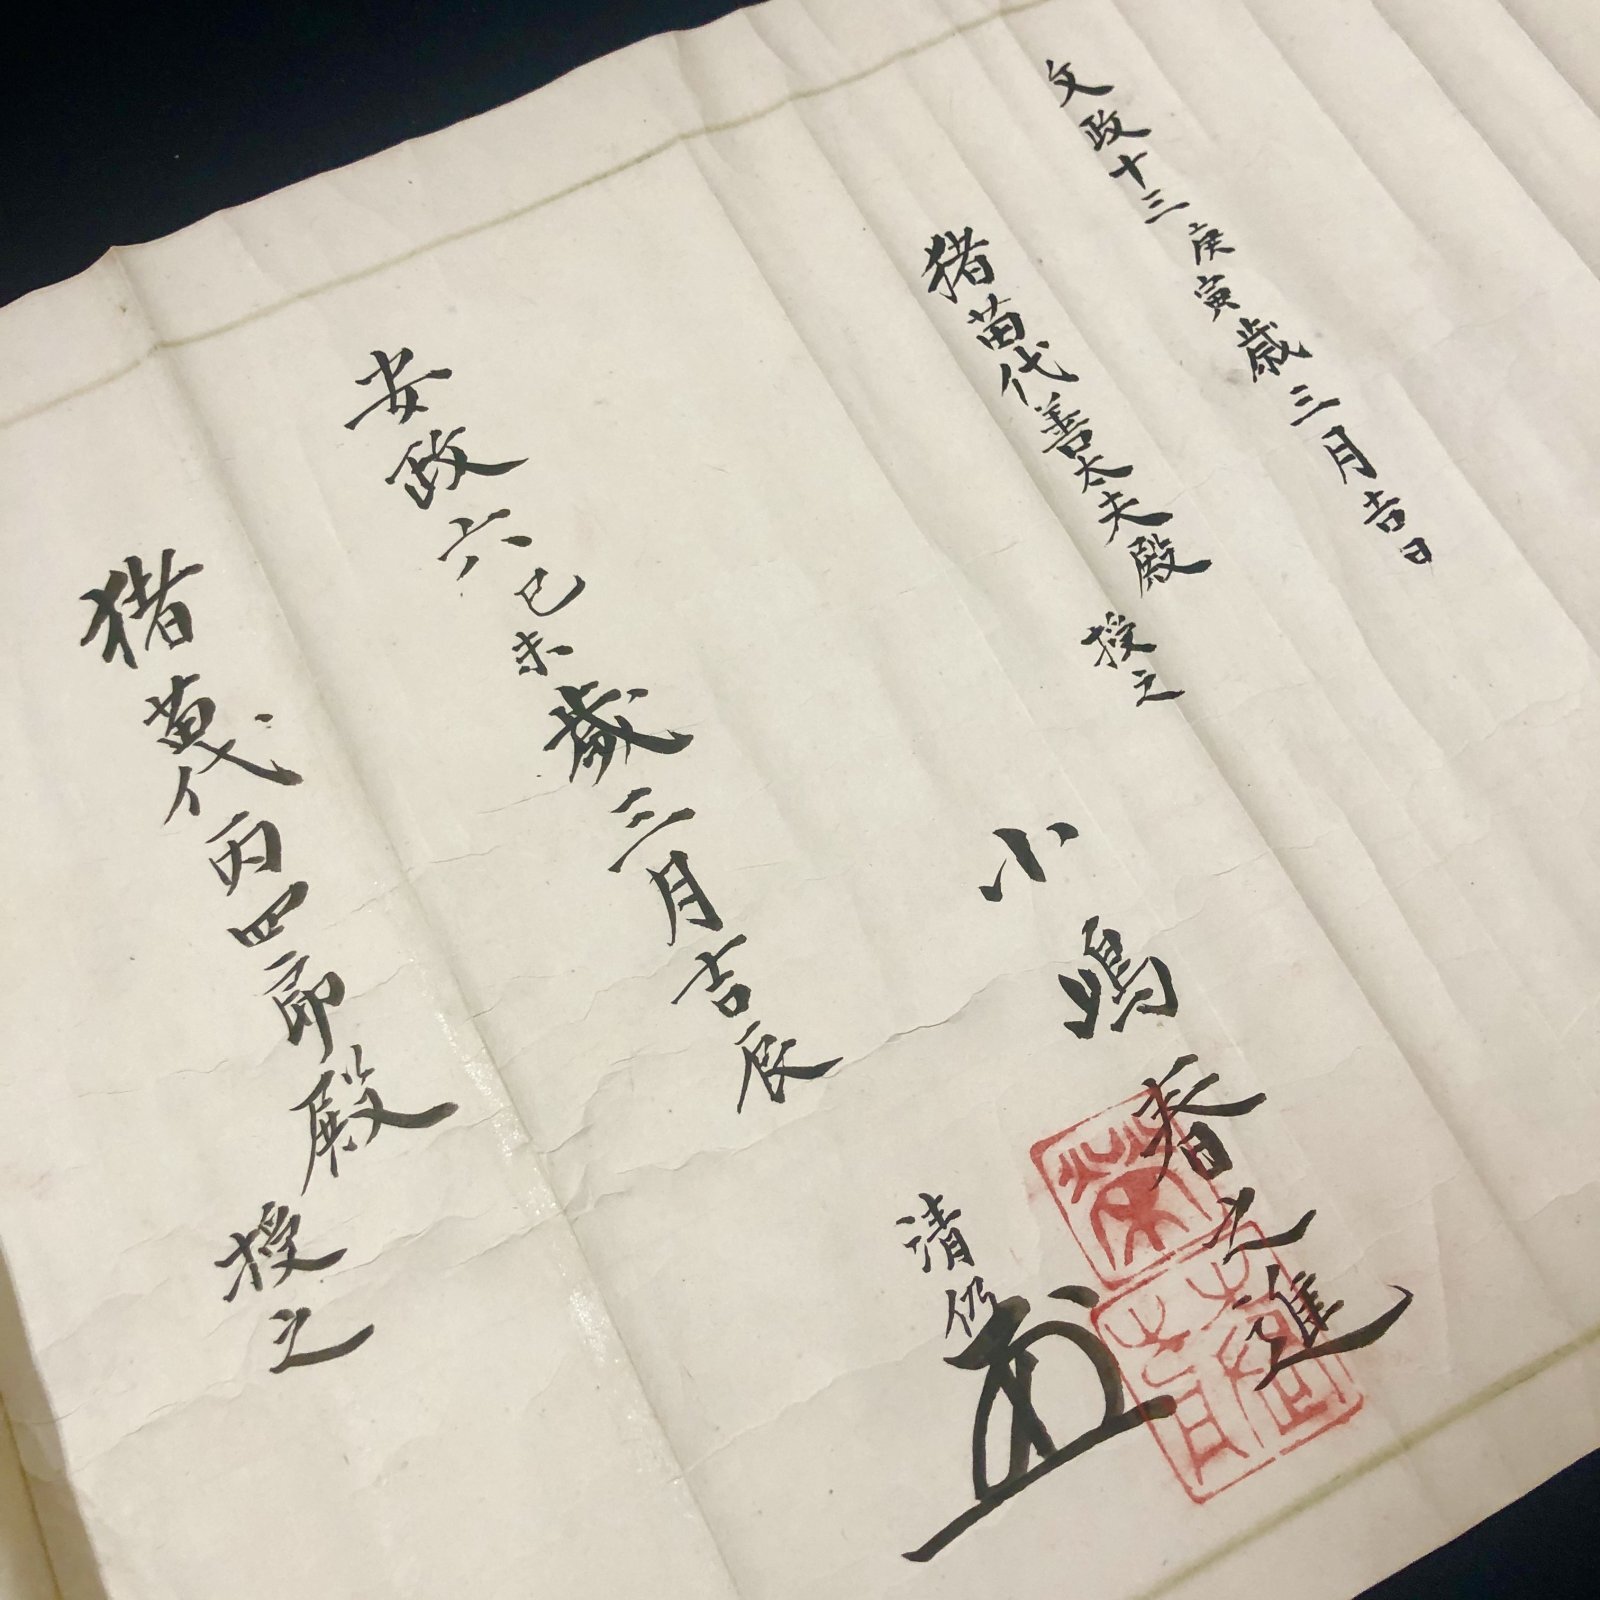 文政十三庚寅歳三月吉日
猪苗代善太夫殿 授之
小嶋春之進
清仍
安政六己未歳三月吉辰
猪苗代丙四郎殿 授之